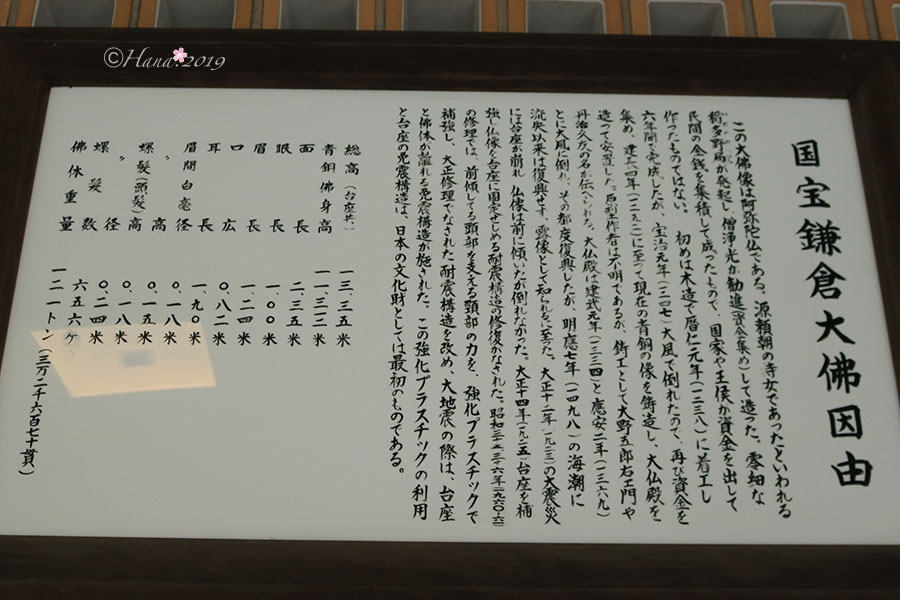 ©Hana.2019
国宝鎌倉大佛因由
この大佛像は阿弥陀仏である。源頼朝の侍女であったといわれる
稲多野局が発起し、僧浄光が勧進(資金集め)して造った。零細な
民間の金銭を集積して成ったもので、国家や王侯が資金を出して
作ったものではない。 初めは木造で暦仁元年(一二三八)に着工し
六年間で完成したが、宝治元年(一二四七)大風で倒れたので、再び資金を
集め、建長四年(一二五二)に至って現在の青銅の像を鋳造し、大仏殿を
造って安置した。原型作者は不明であるが、鋳工として大野五郎右エ門や
丹治久友の名が伝へられる。大仏殿は建武元年(一三三四)と應安二年(一三六九)
とに大風に倒れ、その都度復興したが、明應七年(一四九八)の海潮に
流失以来は復興せず、露像として知られるに至った。大正十二年(一九二三)の大震災
には台座が崩れ 仏像は前に傾いたが倒れなかった。大正十四年(一九二五)台座を補
強し仏像を台座に固定せしめる耐震構造の修復がなされた。昭和三五−三六年(一九六〇−六一)
の修理では、前傾してる頸部を支える頸部の力を、強化プラスチックで
補強し、大正修理でなされた耐震構造を改め、大地震の際は、台座
と佛体が離れる免震構造が施された。この強化プラスチックの利用
と台座の免震構造は、日本の文化財としては最初のものである。
総高(台座共) 一三.三五米
青銅佛身高 一一.三一二米
面長 二.三五米
眼長 一.〇〇米
眉長 一.二四米
口広 〇.八二米
耳長 一.九〇米
眉間白毫径 〇.一八米
螺髪(頭髪)高 〇.一八米
〃 径 〇.二四米
螺髪数 六五六ケ
佛体重量 一二一トン(三万二千六百七十貫)